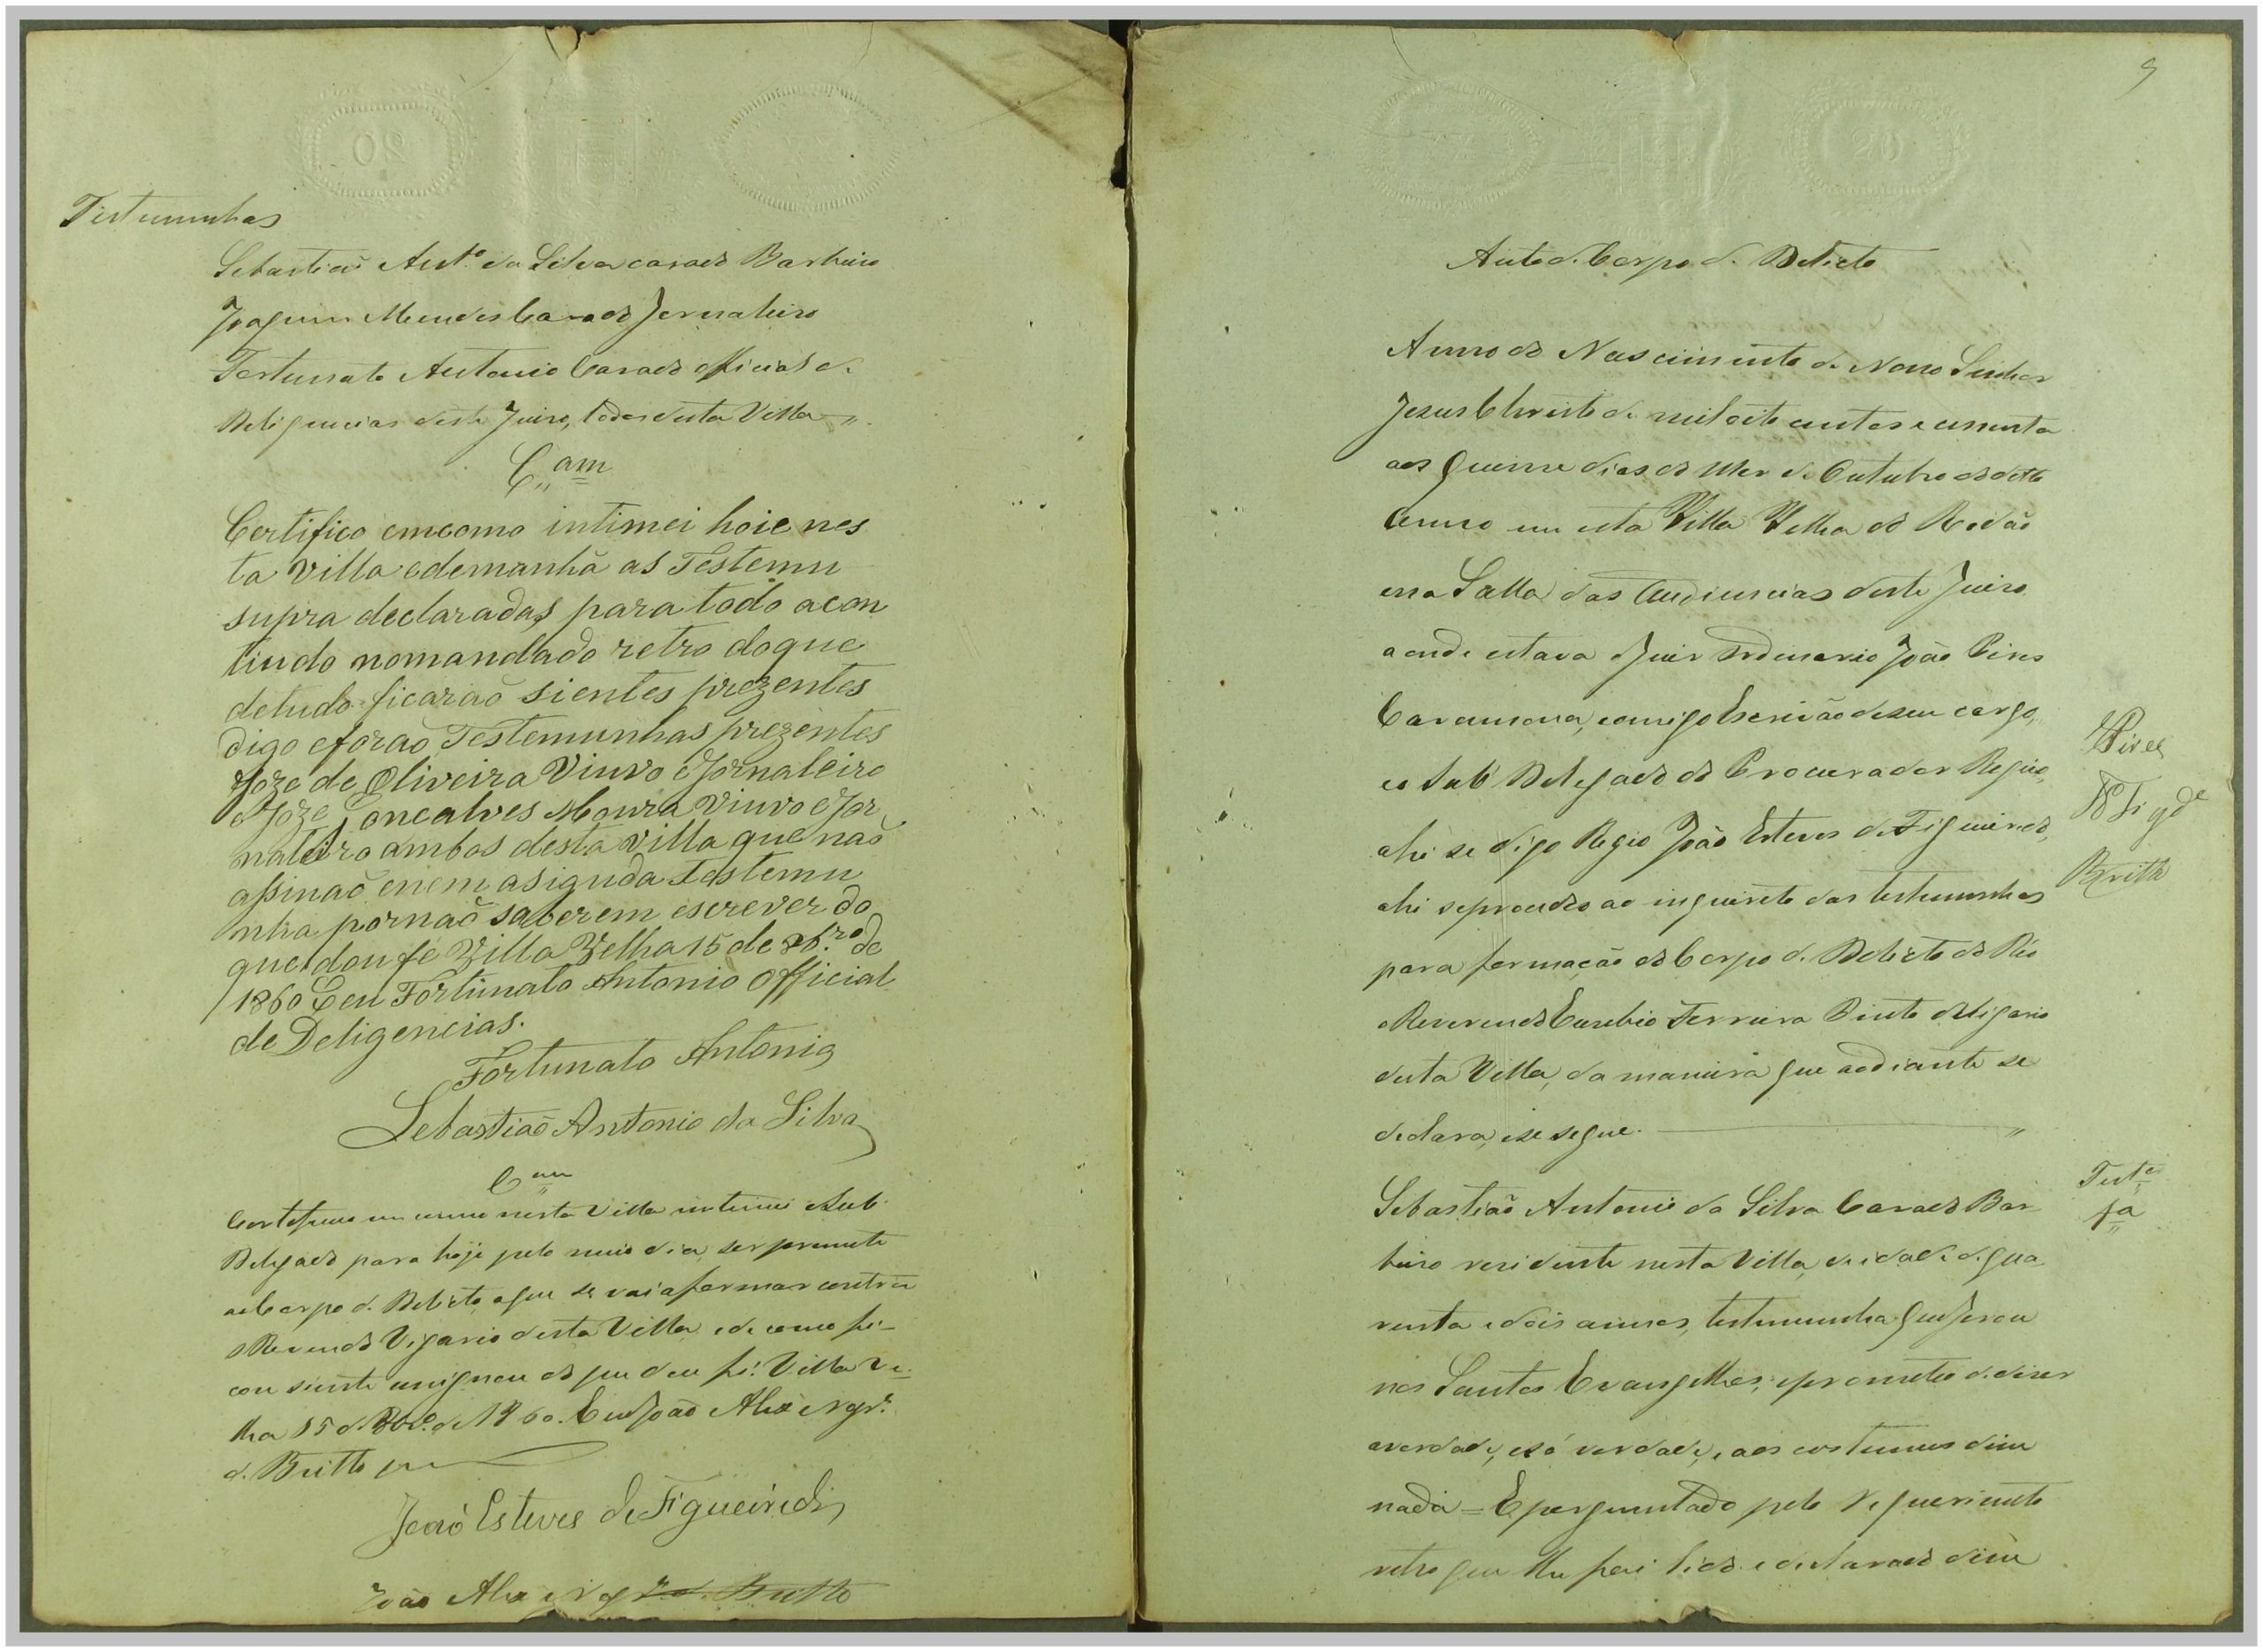 20
Testemunhas
Sebastião Ant.º da Silva casado Barbeiro
Joaquim Mendes Casado Jornaleiro
Fortunato Antonio Casado official de
Deligencias deste Juizo, todos desta Villa //.
C.am
Certifico emcomo intimei hoie nes
ta Villa edemanhã as Testemu
supra declaradas para todo acon
tiudo nomandado retro doque
detudo ficaraõ sientes prezentes
digo eforaõ Testemunhas prezentes
Joze de Oliveira Viuvo eJornaleiro
eJoze Goncalves Moura Viuvo eJor
naleiro ambos desta villa que naõ
assinaõ enem asigunda Testemu
nha pornaõ saberem escrever do
que dou fe Villa Velha 15 de 8br.º de
1860 E eu Fortunato Antonio Official
de Deligencias.
Fortunato Antonio
Sebastiaõ Antonio da Silva
C.am
Certefico em como nesta Villa intimei o Sub
Delegado para hoje pelo meio dia, ser prezente
ao Corpo de Delicto, a que se vai a formar contra
o Revendo Vigario desta Villa e de como fi-
cou siente asignou do que dou fé. Villa Ve-
lha 15 de 8br.º de 1860. Eu João Alex
de Britto
Joaõ Esteves de Figueiredo
João Alex de Britto
9
20
Auto de Corpo de Delicto
Anno do Nascimento de Nosso Senhor
Jezus Christo de mil oito centos e cessenta
aos quinze dias do Mez de Outubro do ditto
Anno em esta Villa Velha do Rodão
e na Salla das Audiencias deste Juizo
aonde estava o Juiz Ordenario João Pires
Caramona, comigo Escrivão de seu cargo,
e o Sub Delegado do Procurador Regio,
ahi se digo Regio João Esteves de Figueiredo,
ahi se procedeo ao inquirito das testemunhas
para formação do Corpo de Delicto do Réo
o Reverendo Euzebio Ferreira Pinto Vigario
desta Villa, da maneira que aodiante se
declara, e se segue. //
Pires
Figd.º
Britto
Sebastião Antonio da Silva Casado Bar
beiro rezidente nesta Villa, de idade de qua
renta e dois annos, testemunha que jurou
nos Santos Evangelhos, e prometeo de dizer
averdade, e só verdade, e aos costumes disse
nada = E perguntado pelo requerimento
retro que lhe foi lido e declarado disse
Test.ª
1.ª